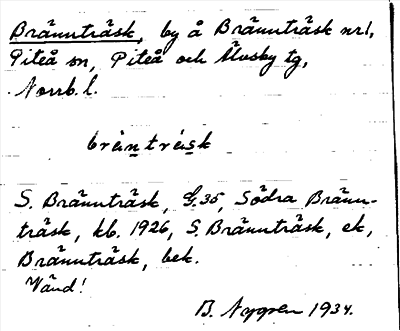 Brännträsk, by å Brännträsk nr 1,
Piteå sn, Piteå och Älvsby tg,
Norrb. l.
brän träsk
S. Brännträsk, G. 35, Södra Bränn-
träsk, kb. 1926, S. Brännträsk, ek,
Brännträsk, bek.
Vänd!
B. Nygren 1934.